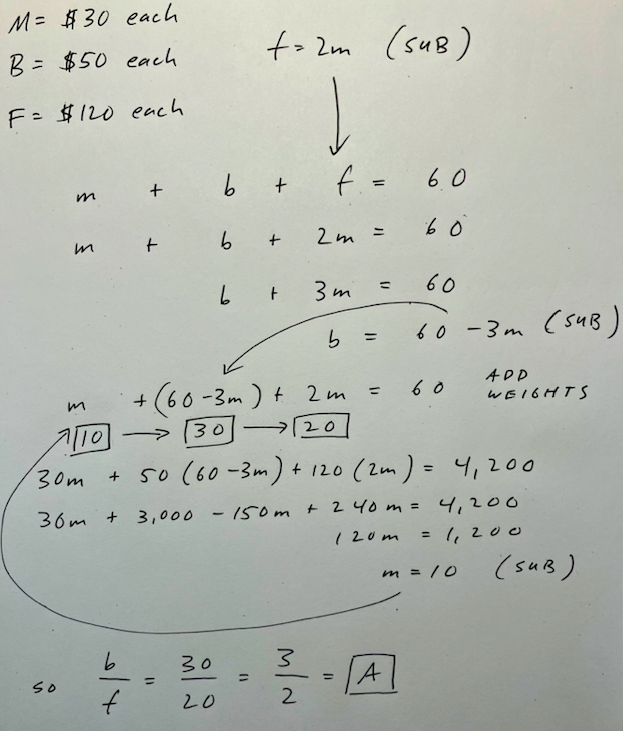 M = $30 each
B = $50 each
F = $120 each
f = 2m (SUB)
m + b + f = 60
m + b + 2m = 60
b + 3m = 60
b = 60 - 3m (SUB)
m + (60 - 3m) + 2m = 60 ADD WEIGHTS
10 → 30 → 20
30m + 50 (60 - 3m) + 120 (2m) = 4,200
30m + 3,000 - 150m + 240m = 4,200
120m = 1,200
m = 10 (SUB)
so b/f = 30/20 = 3/2 = A